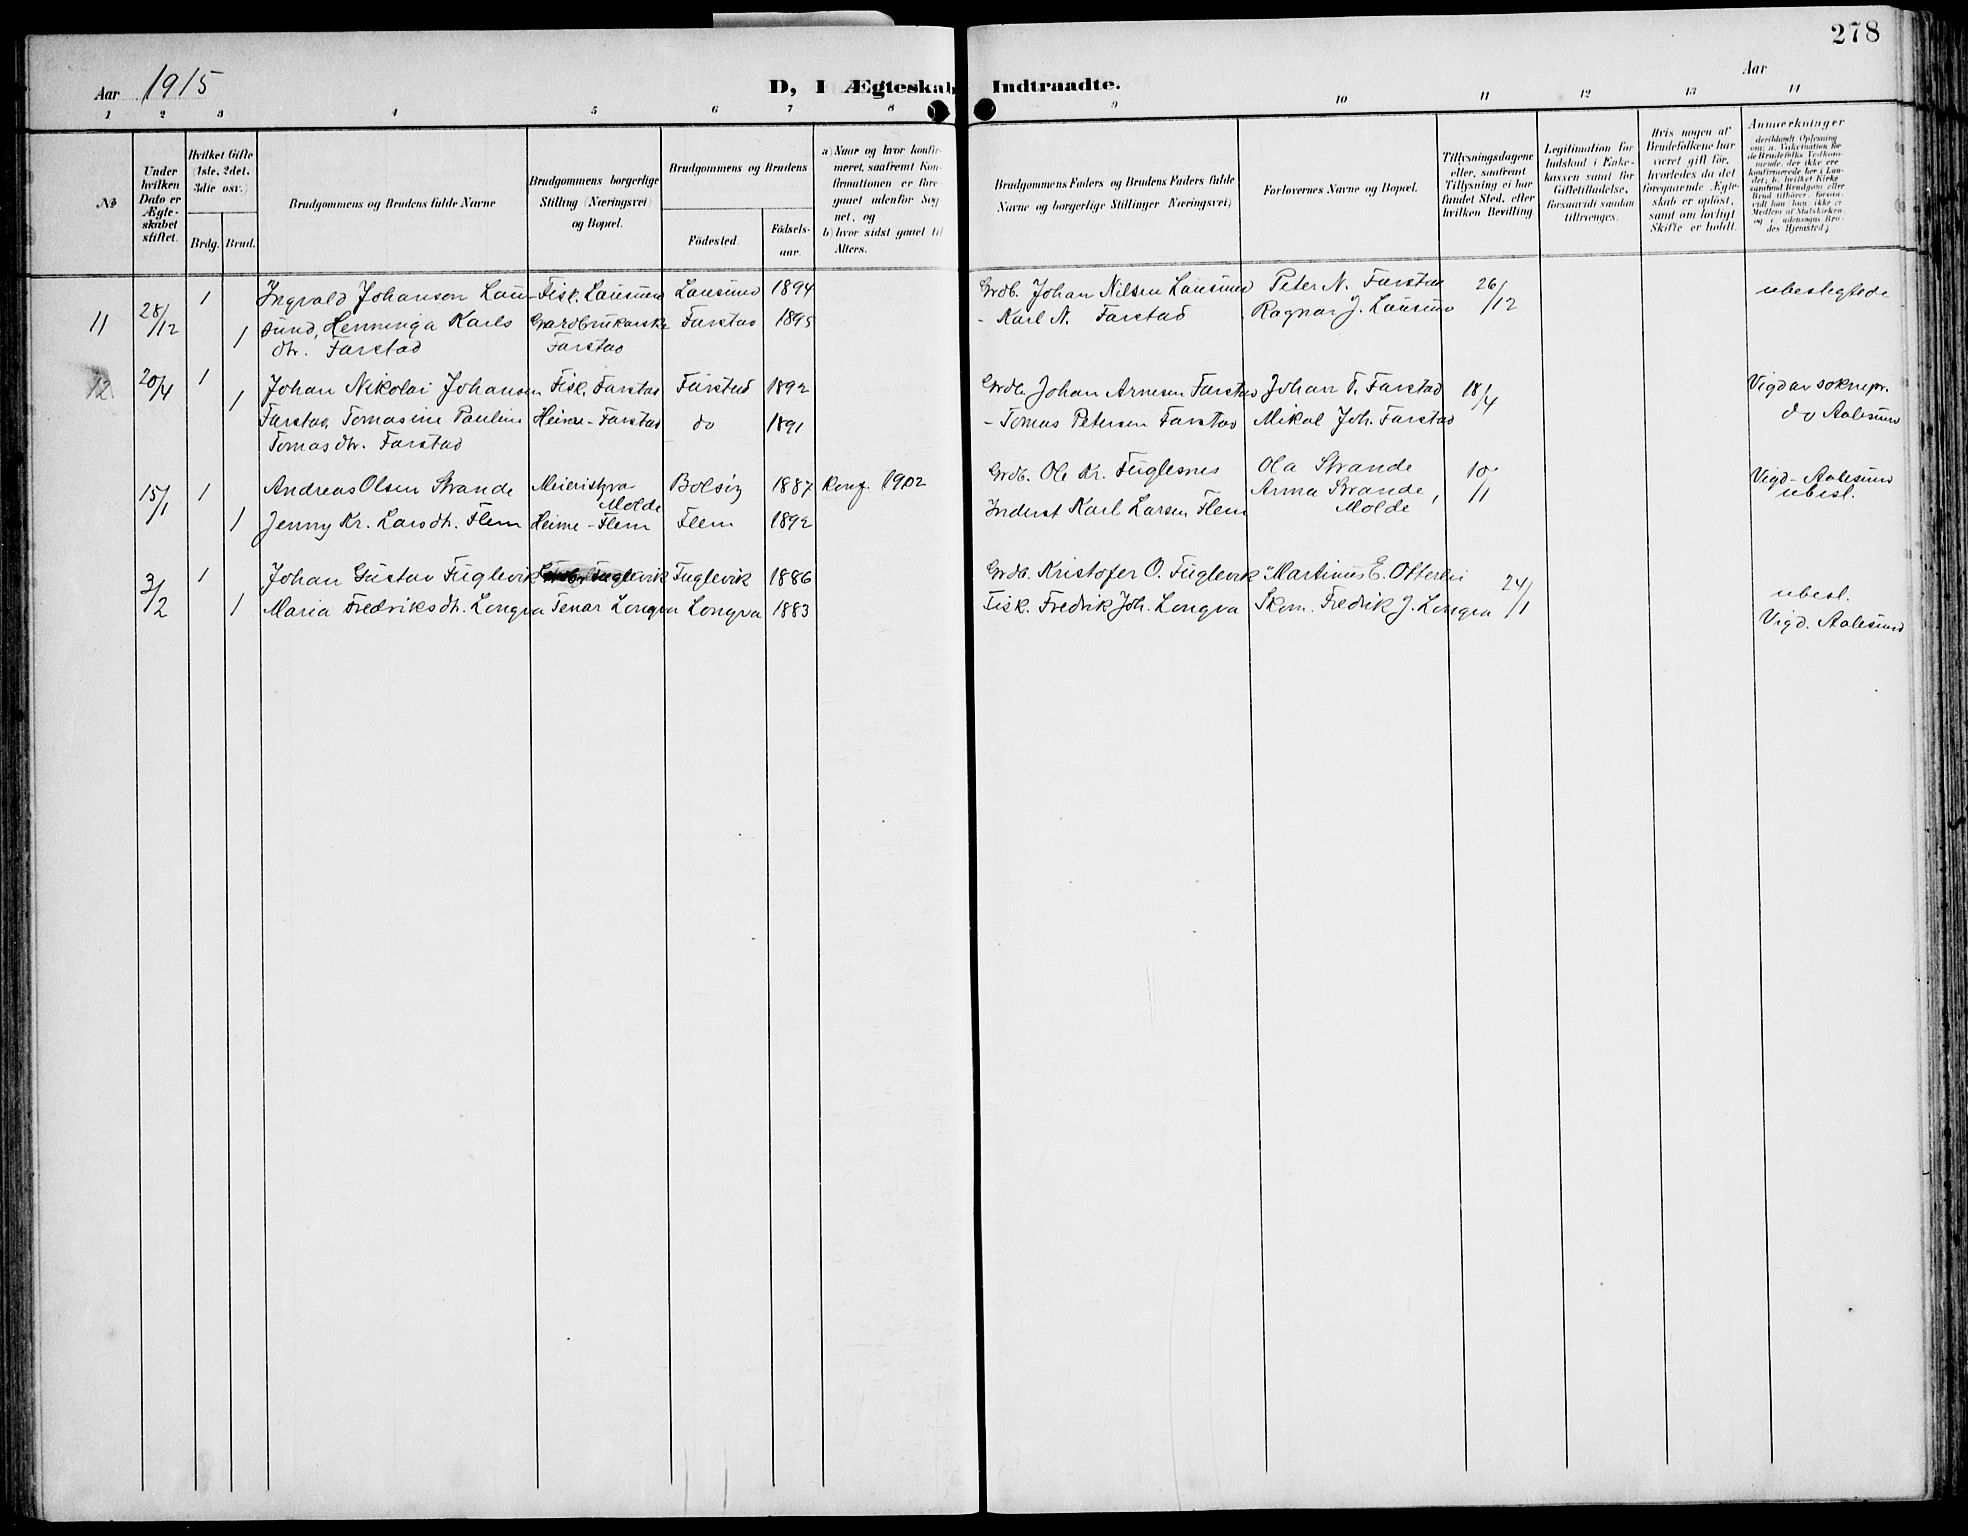 278
Aar 1915
D, I Ægteskab Indtraadte.
Aar
1 2 3 4 5 6 7 8 9 10 11 12 13 14
No
Under hvilken Dato er Ægteskabet stiftet.
Hvilket Gifte (1ste, 2det, 3die osv.)
Brdg. Brud.
Brudgommens og Brudens fulde Navne
Brudgommens borgerlige Stilling (Næringsvei) og Bopæl.
Brudgommens og Brudens
Födested.
Födsels-aar.
a) Naar og hvor konfirmeret, saafremt Konfirmationen er foregaaet udenfor Sognet, og
b) hvor sidst gaaet til Alters.
Brudgommens Faders og Brudens Faders fulde Navne og borgerlige Stillinger (Næringsvei)
Forlovernes Navne og Bopæl.
Tillysningsdagene eller, saafremt Tillysning ei har fundet Sted, efter hvilken Bevilling.
Legitimation for Indskud i Enkekassen samt for Giftetilladelse, forsaavidt saadan tiltrænges.
Hvis nogen af Brudefolkene har været gift för, hvorledes da det foregaaende Ægteskab er oplöst, samt om lovligt Skifte er holdt.
Anmerkninger
11 28/12 1 Ingvald Johansen Lau- Fisk. Lausund Lausund 1894 Grdb. Johan Nilsen Lausund Peter N. Farstad 26/12 ubeslegtede
1 sund, Henninga Karls Gardbrukarske Farstad 1895 - Karl N. Farstad Ragnar J. Lausund
dtr. Farstad Farstad
12 20/4 1 Johan Nikolai Johansen Fisk. Farstad Farstad 1892 Grdb. Johan Arnesen Farstad Johan T. Farstad 18/4 Vigd av soknepr.
1 Farstad, Tomasine Pauline Heime - Farstad do 1891 - Tomas Petersen Farstad Mikal Joh. Farstad do Aalesund
Tomasdtr. Farstad
15/1 1 Andreas Olsen Strande Meieristyra Molde Bolsöy 1887 Konf. 1902 Grdb. Ole Kr. Fuglesnes Ola Strande 10/1 Vigd - Aalesund
1 Jenny Kr. Larsdtr. Flem Heime - Flem Flem 1892 Inderst Karl Larsen Flem Anna Strande, Molde ubesl.
3/2 1 Johan Gustav Fuglevik Fuglevik Fuglevik 1886 Grdb. Kristofer O. Fuglevik Martinus E. Otterlei 24/1 ubesl.
1 Maria Fredriksdtr. Longva Tenar Longva Longva 1883 Fisk. Fredrik Joh. Longva Skom. Fredrik J. Longva Vigd. Aalesund